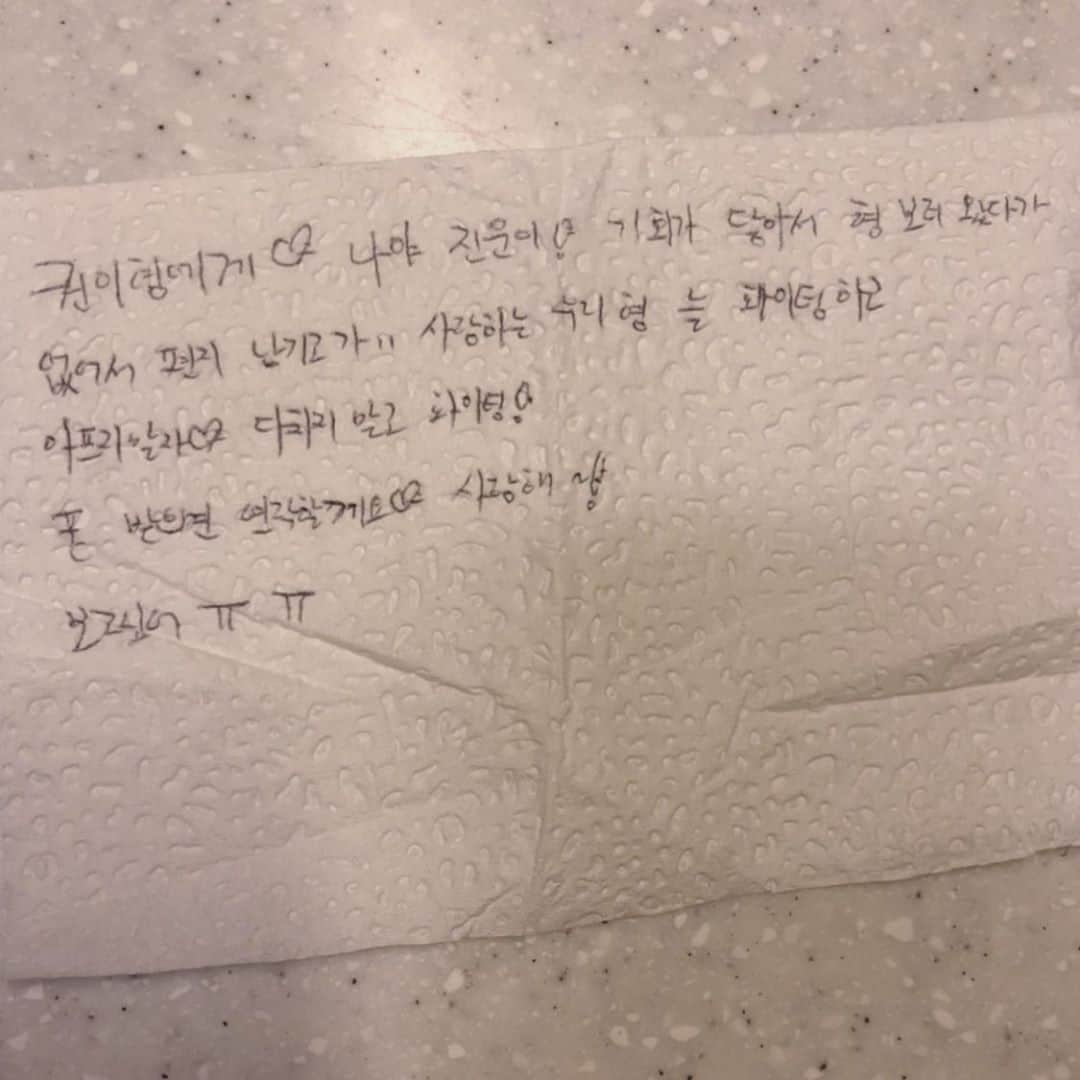 권이형에게♡ 나야 진운이! 기회가 닿아서 형 보러 왔다가
없어서 편지 남기고가" 사랑하는 우리형 늘 화이팅하고
아프지말자♡ 다치지 말고 화이팅!
폰 받으면 연락할게요♡ 사랑해
보고싶어 ㅠ ㅠ